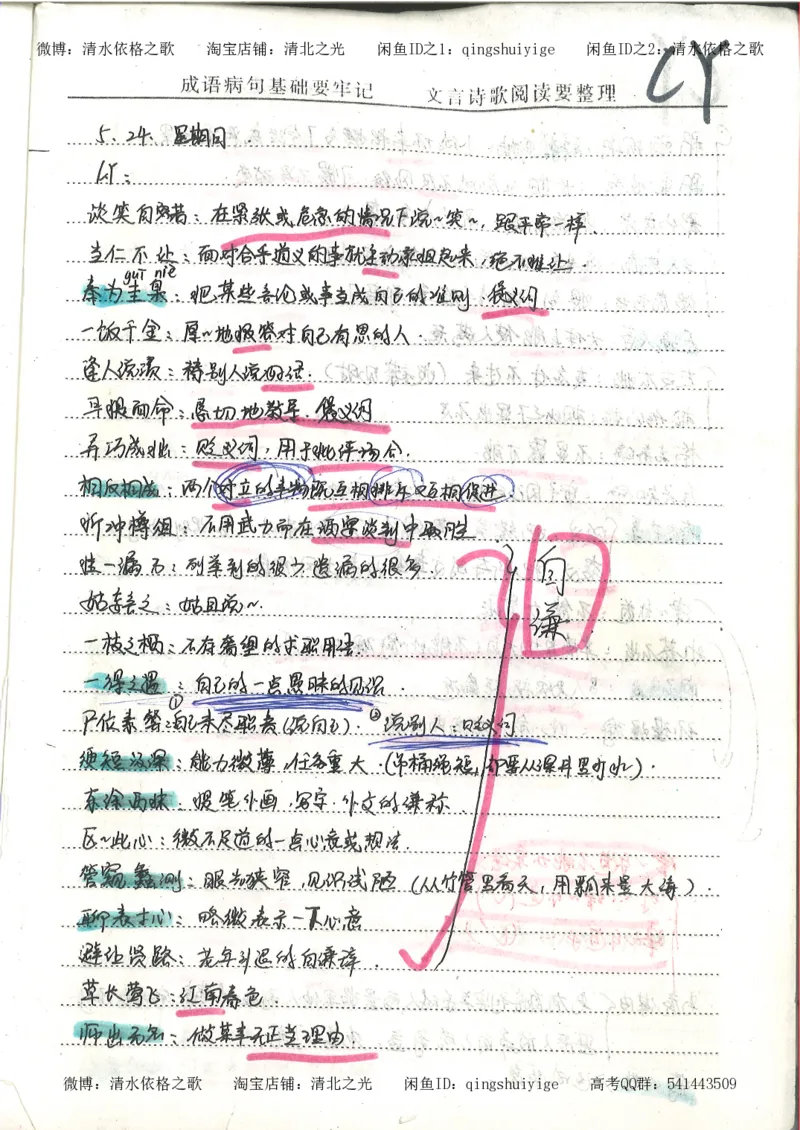 微博：清水依格之歌 淘宝店铺：清北之光 闲鱼ID之1：qingshuiyige 闲鱼ID之2：清水依格之歌
成语病句基础要牢记 文言诗歌阅读要整理
CY
5.24. 星期日
CY：
谈笑自若：在紧张或危急的情况下说~笑~，跟平常一样.
当仁不让：面对合乎道义的事就主动承担起来，绝不推让.
guī niè
奉为圭臬：把某些言论或事当成自己的准则.褒义词
一饭千金：厚~地报答对自己有恩的人.
逢人说项：替别人说好话.
耳提面命：恳切地教导.褒义词
弄巧成拙：贬义词，用于批评场合.
相反相成：两个对立的事物既互相排斥又互相促进.
折冲樽俎：不用武力而在酒宴谈判中取胜
挂一漏万：列举到的很少遗漏的很多.
姑妄言之：姑且说~.
一枝之栖：不存奢望的求职用语.
一得之愚：自己的一点愚昧的见识.
自谦
尸位素餐：①自己未尽职责(说自己).②说别人：贬义词
绠短汲深：能力微薄，任务重大.(吊桶绳短，却要从深井里打水).
东涂西抹：提笔作画.写字.作文的谦称.
区~此心：微不足道的一点心意或想法.
管窥蠡测：眼光狭窄，见识浅陋（从竹管里看天，用瓢来量大海）.
聊表寸心：略微表示一下心意
避让贤路：老年引退的自谦辞.
草长莺飞：江南春色
师出无名：做某事无正当理由
微博：清水依格之歌 淘宝店铺：清北之光 闲鱼ID：qingshuiyige 高考QQ群：541443509